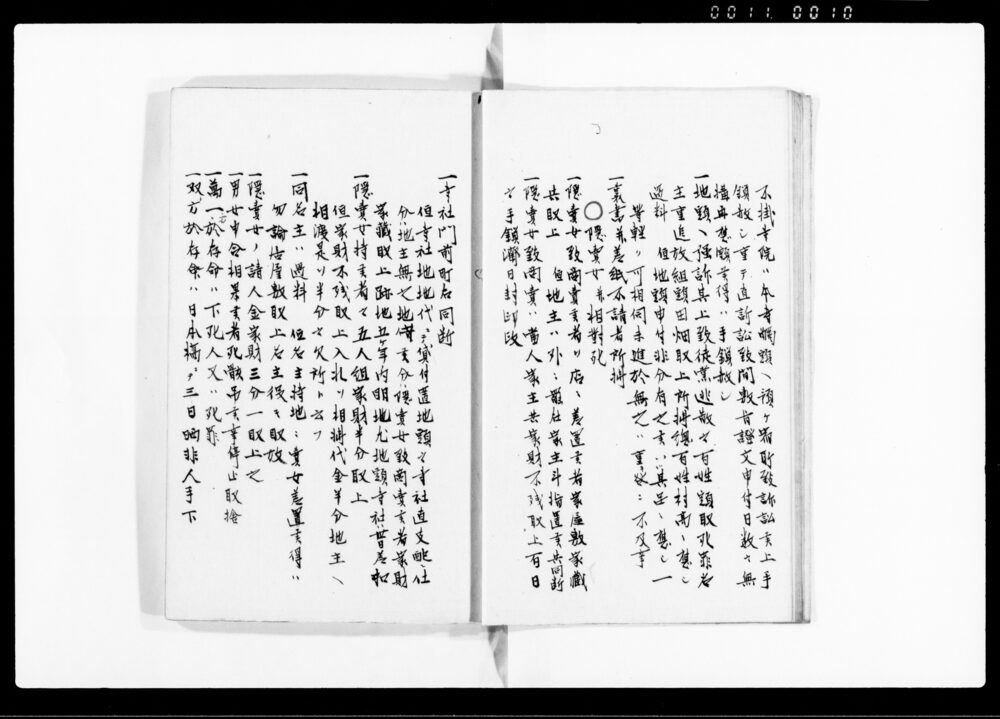 0011 0010
不掛寺院ハ本寺觸頭ヘ預ケ若町致訴訟者上手
鎖赦シ重テ直訴訟致間敷旨證文申付日数ニ無
構再應願者得ハ手鎖赦シ
一地頭ヘ強訴其上致徒黨逃散之百姓頭取死罪名
主重追放組頭田畑取上所拂總百姓村高ニ應シ
過料 但地頭申付非分有之者ハ其品ニ應シ一
等輕ク可相伺未進於無之ハ重咎ニ不及事
一裏書并差紙不請者所拂
○隠賣女并相對死
一隠賣女致商賣者ノ店ヘ差置者家屋敷家藏
共取上 但地主ハ外ニ罷在家主斗指置者共同断
一隠賣女致商賣ハ當人家主共家財不残取上百日
之手鎖濟日封印改
一寺社門前町屋同断
但寺社地地代ニテ貸付置地頭之寺社直支配仕
分地主無之地借者分隠賣女致商賣者家財
家藏取上跡地五ケ年内明地尤地頭寺社
一隠賣女持者之五人組家財半分取上
但家財不残取上入札ノ相拂代金半分地主ヘ
相渡是ノ半分之欠所
一同名主ハ過料 但名主持地ニ賣女差置者得ハ
勿論居屋敷取上名主役ヲ取放
一隠賣女ノ請人金家財三分一取上之
一男女申合相果者死骸吊者事停止取捨
一萬一一方於存命ハ下死人又ハ死罪
一双方於存命ハ日本橋ヲ三日晒非人手下